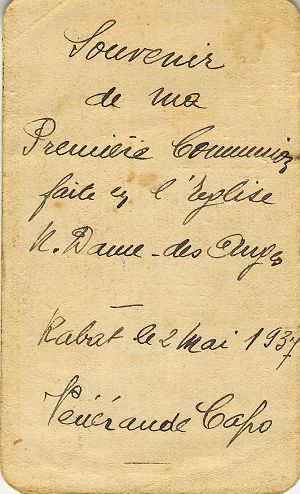 Souvenir
de ma
Première Communion
faite en l'Eglise
N. Dame-des Anges
Rabat le 2 Mai 1937
Vénérande Capo